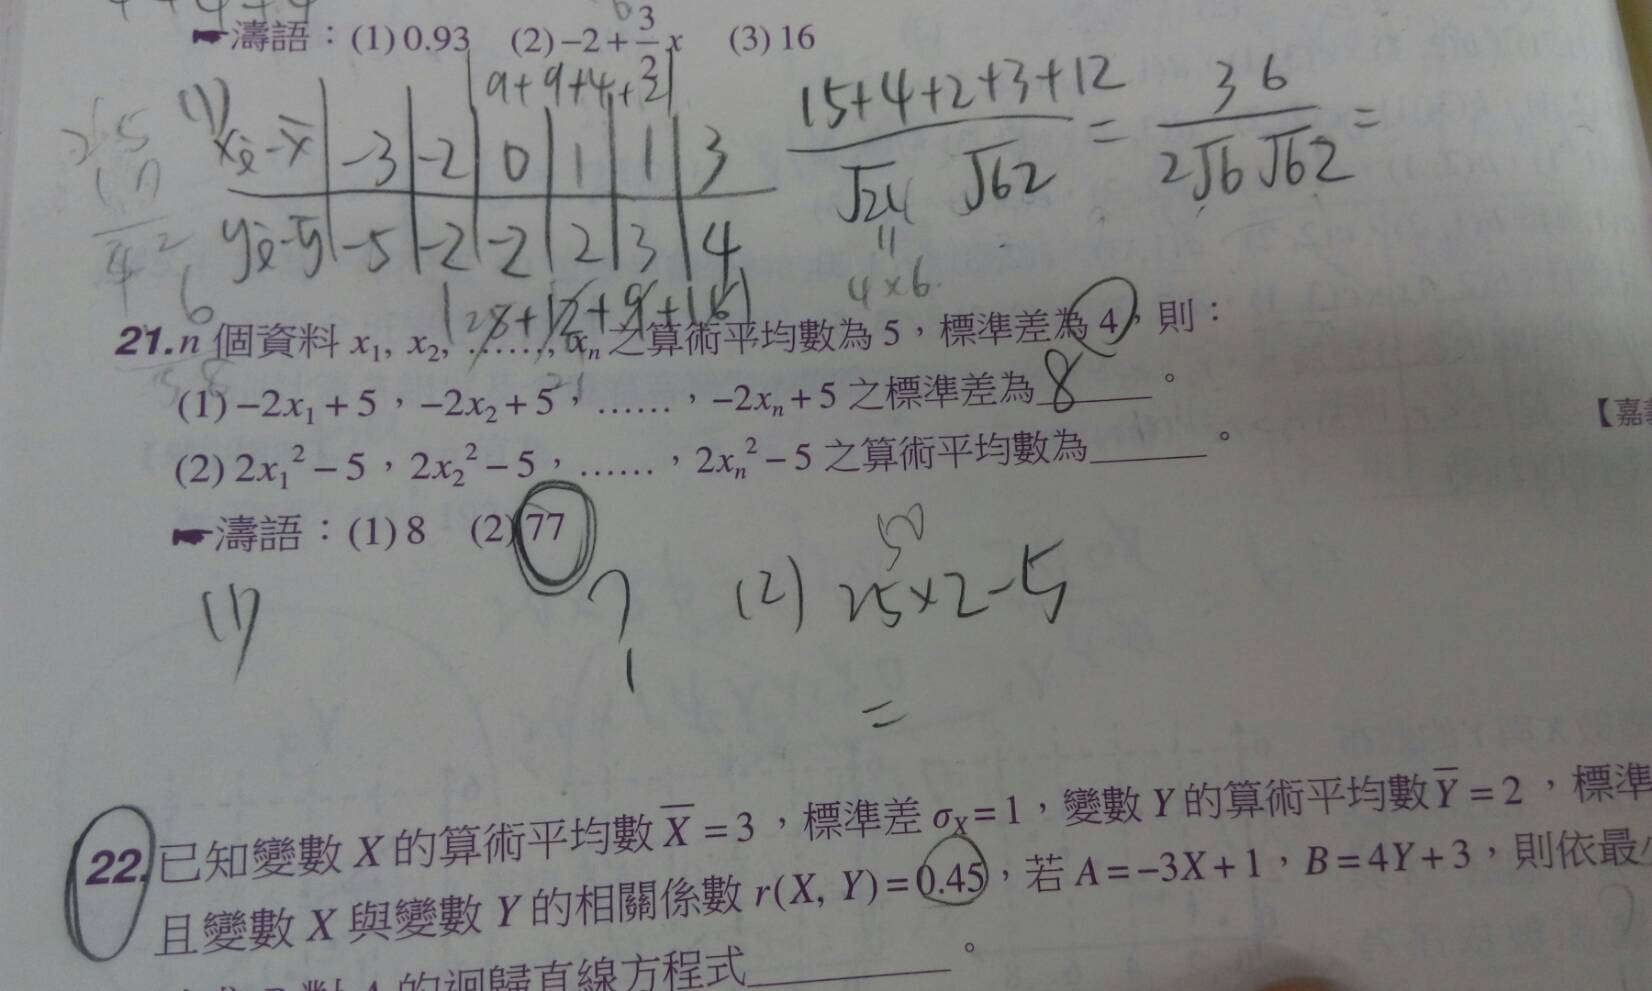 ☛濤語：(1) 0.93 (2) −2 + 3/2 x (3) 16
9+9+4+2
(1)
xᵢ−x̄ | −3 | −2 | 0 | 1 | 1 | 3
yᵢ−ȳ | −5 | −2 | −2 | 2 | 3 | 4
15+4+2+3+12 / √24 √62 = 36 / 2√6 √62 =
11
4×6
21. n 個資料 x₁, x₂, ……, xₙ 之算術平均數為 5，標準差為 4，則：
(1) −2x₁ + 5，−2x₂ + 5，……，−2xₙ + 5 之標準差為 8 。
【嘉
(2) 2x₁² − 5，2x₂² − 5，……，2xₙ² − 5 之算術平均數為______。
☛濤語：(1) 8 (2) 77
(1)
?
(2) 25×2−5
50
=
22. 已知變數 X 的算術平均數 X̄ = 3，標準差 σ_X = 1，變數 Y 的算術平均數 Ȳ = 2，標準
且變數 X 與變數 Y 的相關係數 r(X, Y) = 0.45，若 A = −3X + 1，B = 4Y + 3，則依最
A 的迴歸直線方程式______。